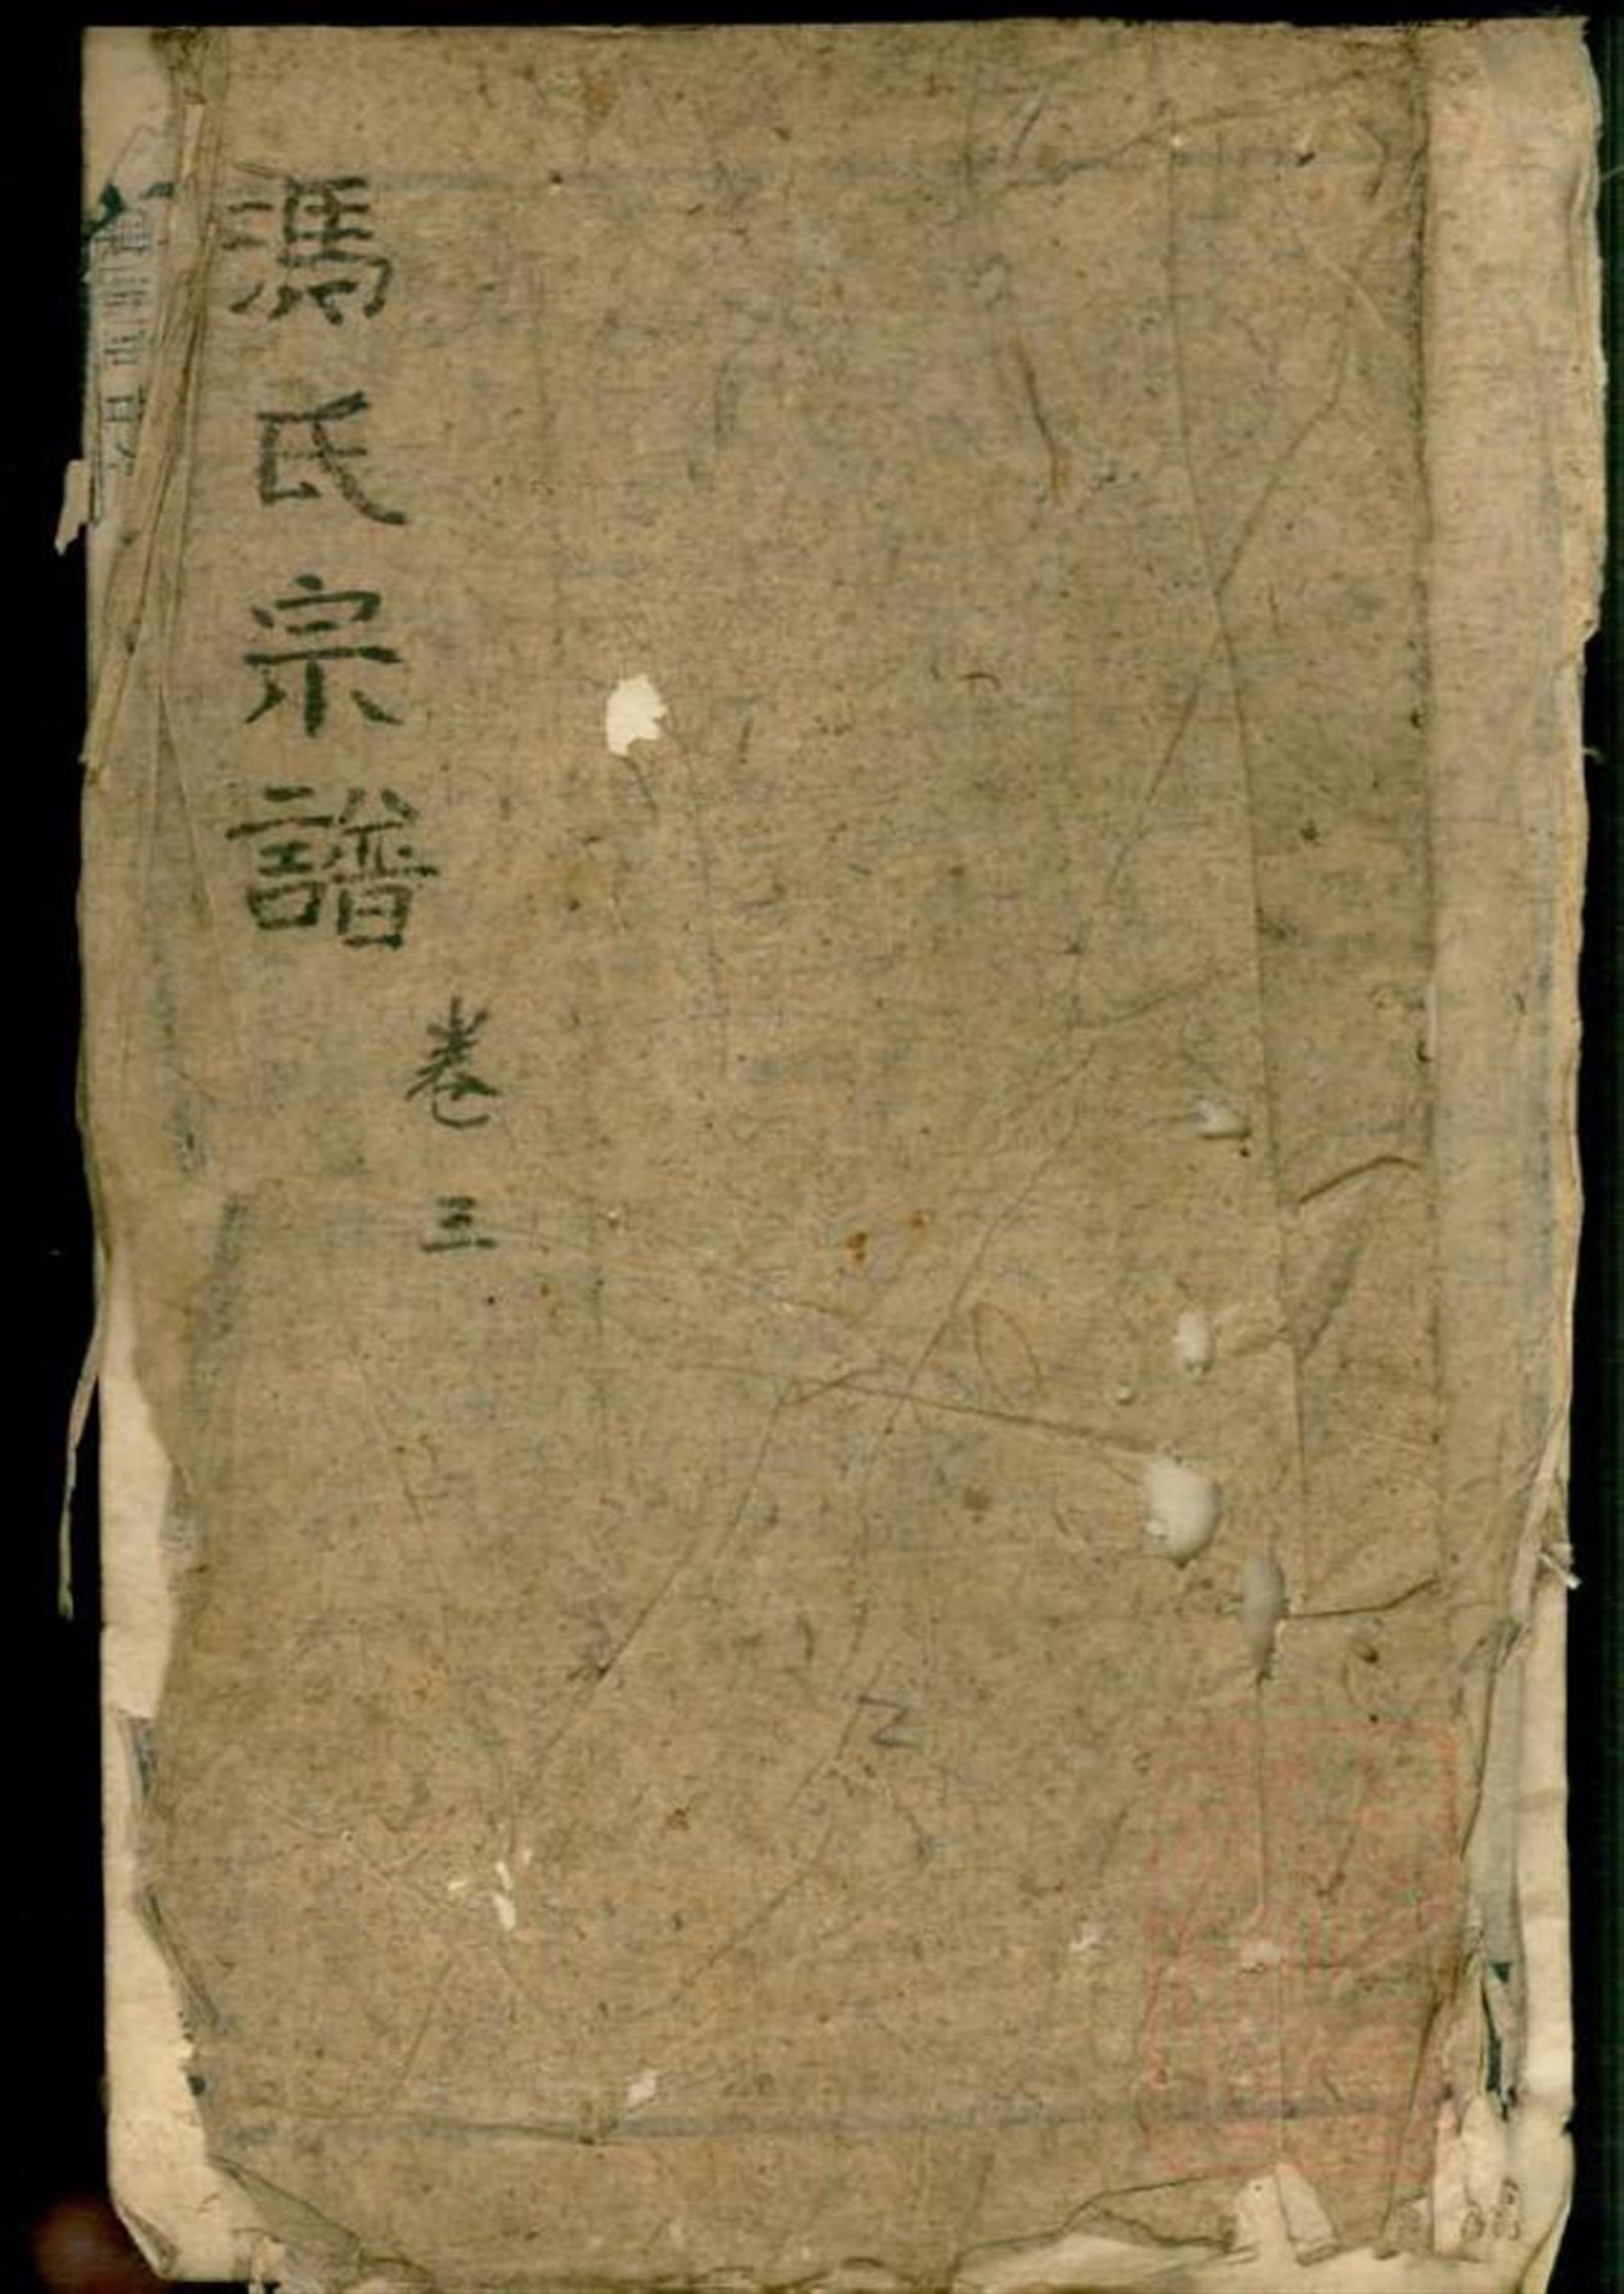 馮氏宗譜
卷三